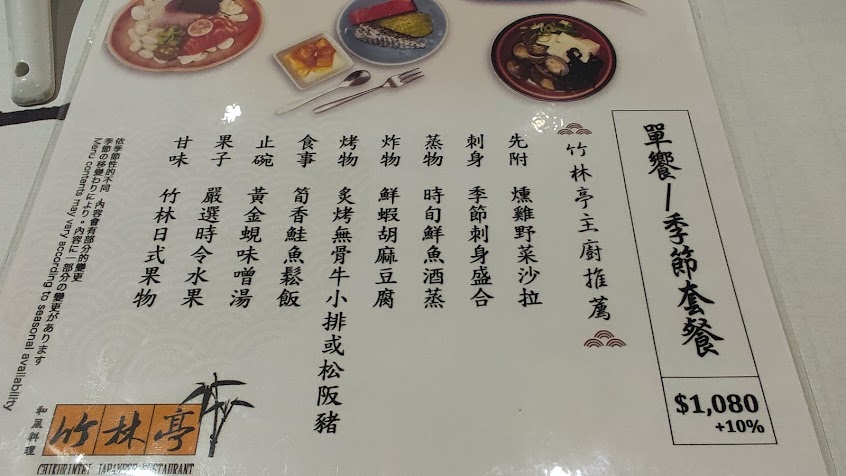 單饗/季節套餐
$1,080
+10%
竹林亭主廚推薦
先附 燻雞野菜沙拉
刺身 季節刺身盛合
蒸物 時旬鮮魚酒蒸
炸物 鮮蝦胡麻豆腐
烤物 炙烤無骨牛小排或松阪豬
食事 筍香鮭魚鬆飯
止碗 黃金蜆味噌湯
果子 嚴選時令水果
甘味 竹林日式果物
依季節性的不同,內容會有部分的變更
季節の移変わりにより。內容に一部分の變更があります
Menu contents may vary according to seasonal availability
和風料理
竹林亭
CHIKURINTEI JAPANESE RESTAURANT